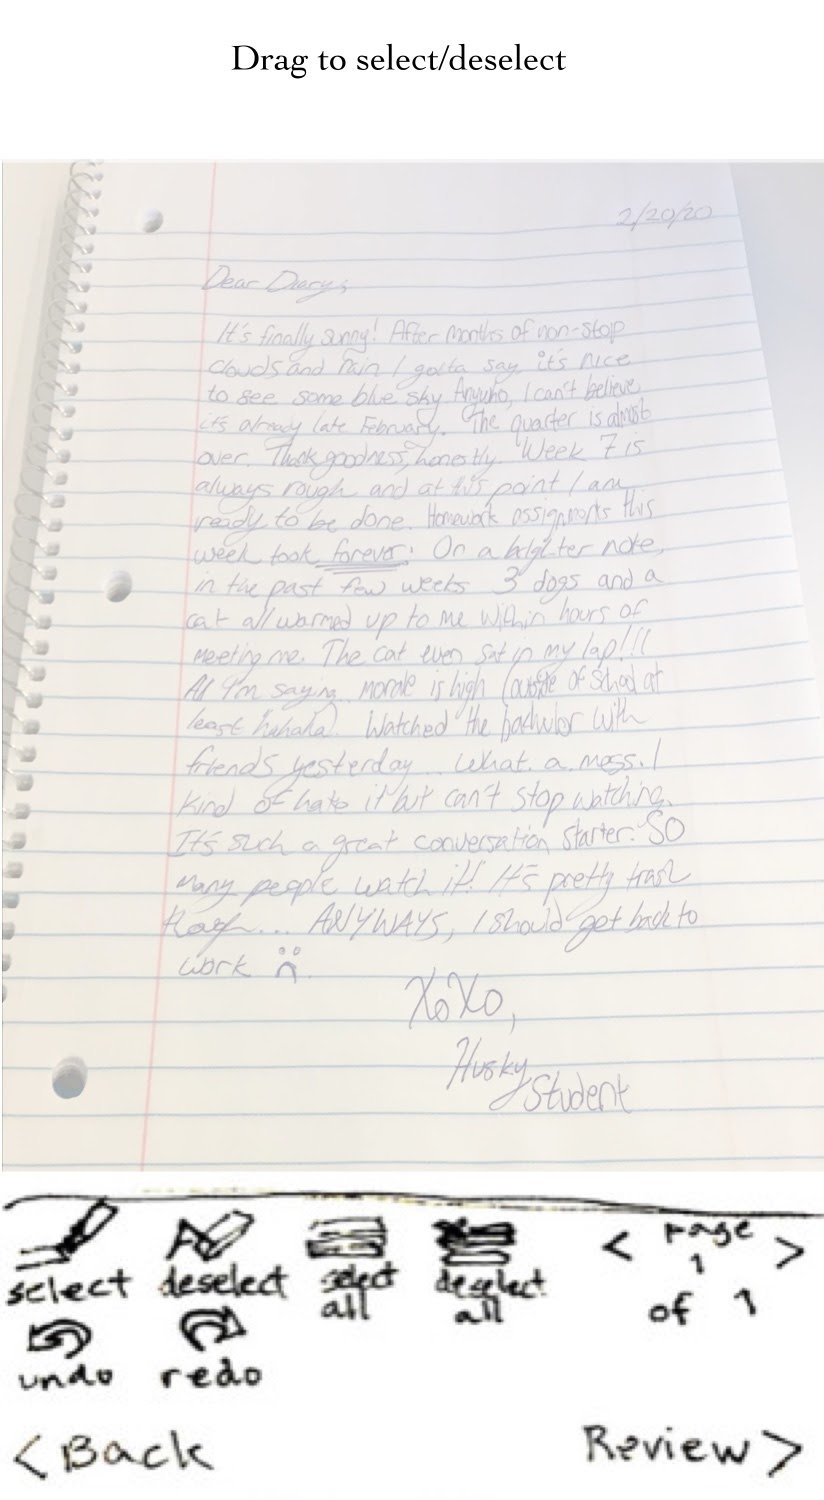 Drag to select/deselect
2/20/20
Dear Diary,
It's finally sunny! After months of non-stop
clouds and rain I gotta say it's nice
to see some blue sky Anywho, I can't believe
it's already late February. The quarter is almost
over. Thank goodness, honestly. Week 7 is
always rough and at this point I am
ready to be done. Homework assignments this
week took forever! On a brighter note,
in the past few weeks 3 dogs and a
cat all warmed up to me within hours of
meeting me. The cat even sat in my lap!!!
All I'm saying morale is high (outside of school at
least hahaha). Watched the bachelor with
friends yesterday. What a mess. I
kind of hate it but can't stop watching.
It's such a great conversation starter. SO
many people watch it! It's pretty trash
though... ANYWAYS, I should get back to
work
XoXo,
Husky
Student
select deselect select all deselect all < Page 1 of 1 >
undo redo
< Back Review >